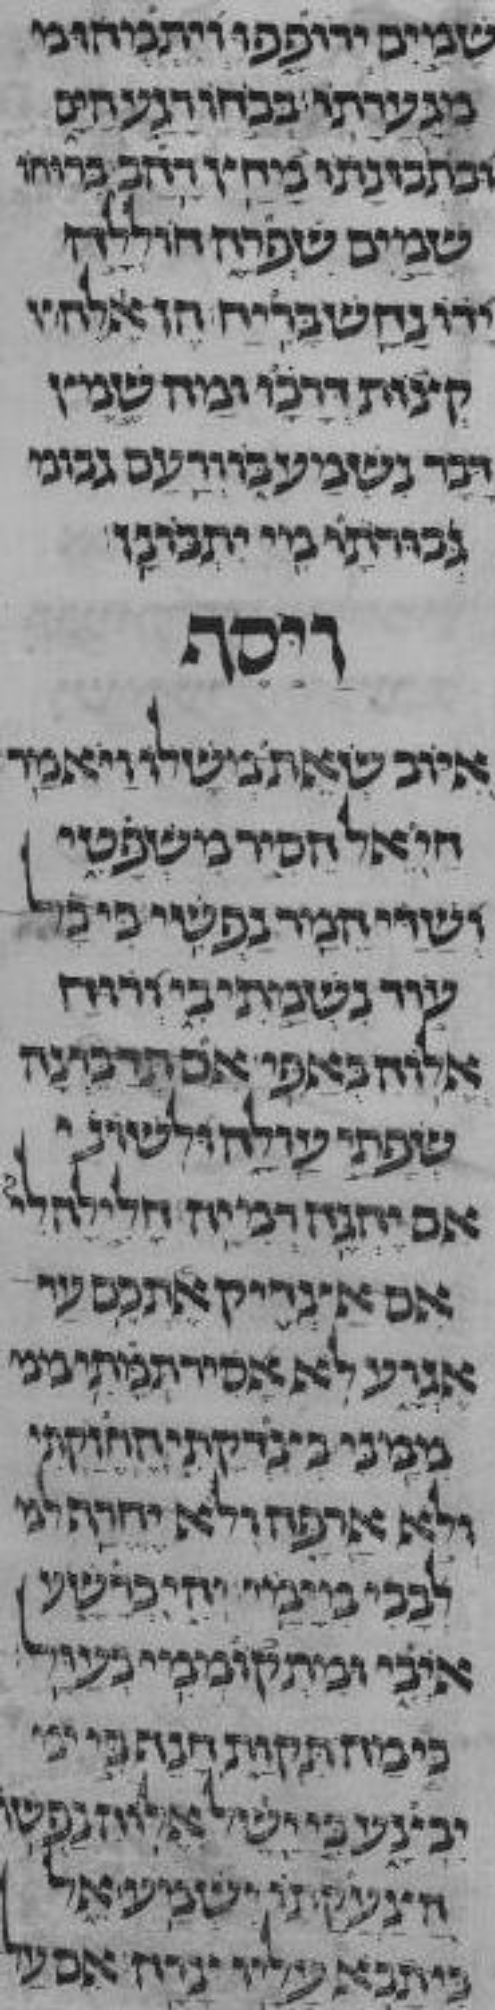 שמים ירופפו ויתמהו מ
מגערתו בכחו רגע הים
ובתבונתו מחץ רהב ברוחו
שמים שפרה חוללה
ידו נחש בריח הן אלה
קצות דרכו ומה שמץ
דבר נשמע בו ורעם גבו
גבורתו מי יתבונן
ויסף
איוב שאת משלו ויאמר
חי אל הסיר משפטי
ושדי המר נפשי כי כל
עוד נשמתי בי ורוח
אלוה באפי אם תדברנה
שפתי עולה ולשוני
אם יהגה רמיה חלילה לי
אם אצדיק אתכם עד
אגוע לא אסיר תמתי ממ
ממני בצדקתי החזקתי
ולא ארפה ולא יחרף ל
לבבי מימי יהי כרשע
איבי ומתקוממי כעול
כי מה תקות חנף כי
יבצע כי ישל אלוה נפשו
הצעקתו ישמע אל
כי תבא עליו צרה אם על